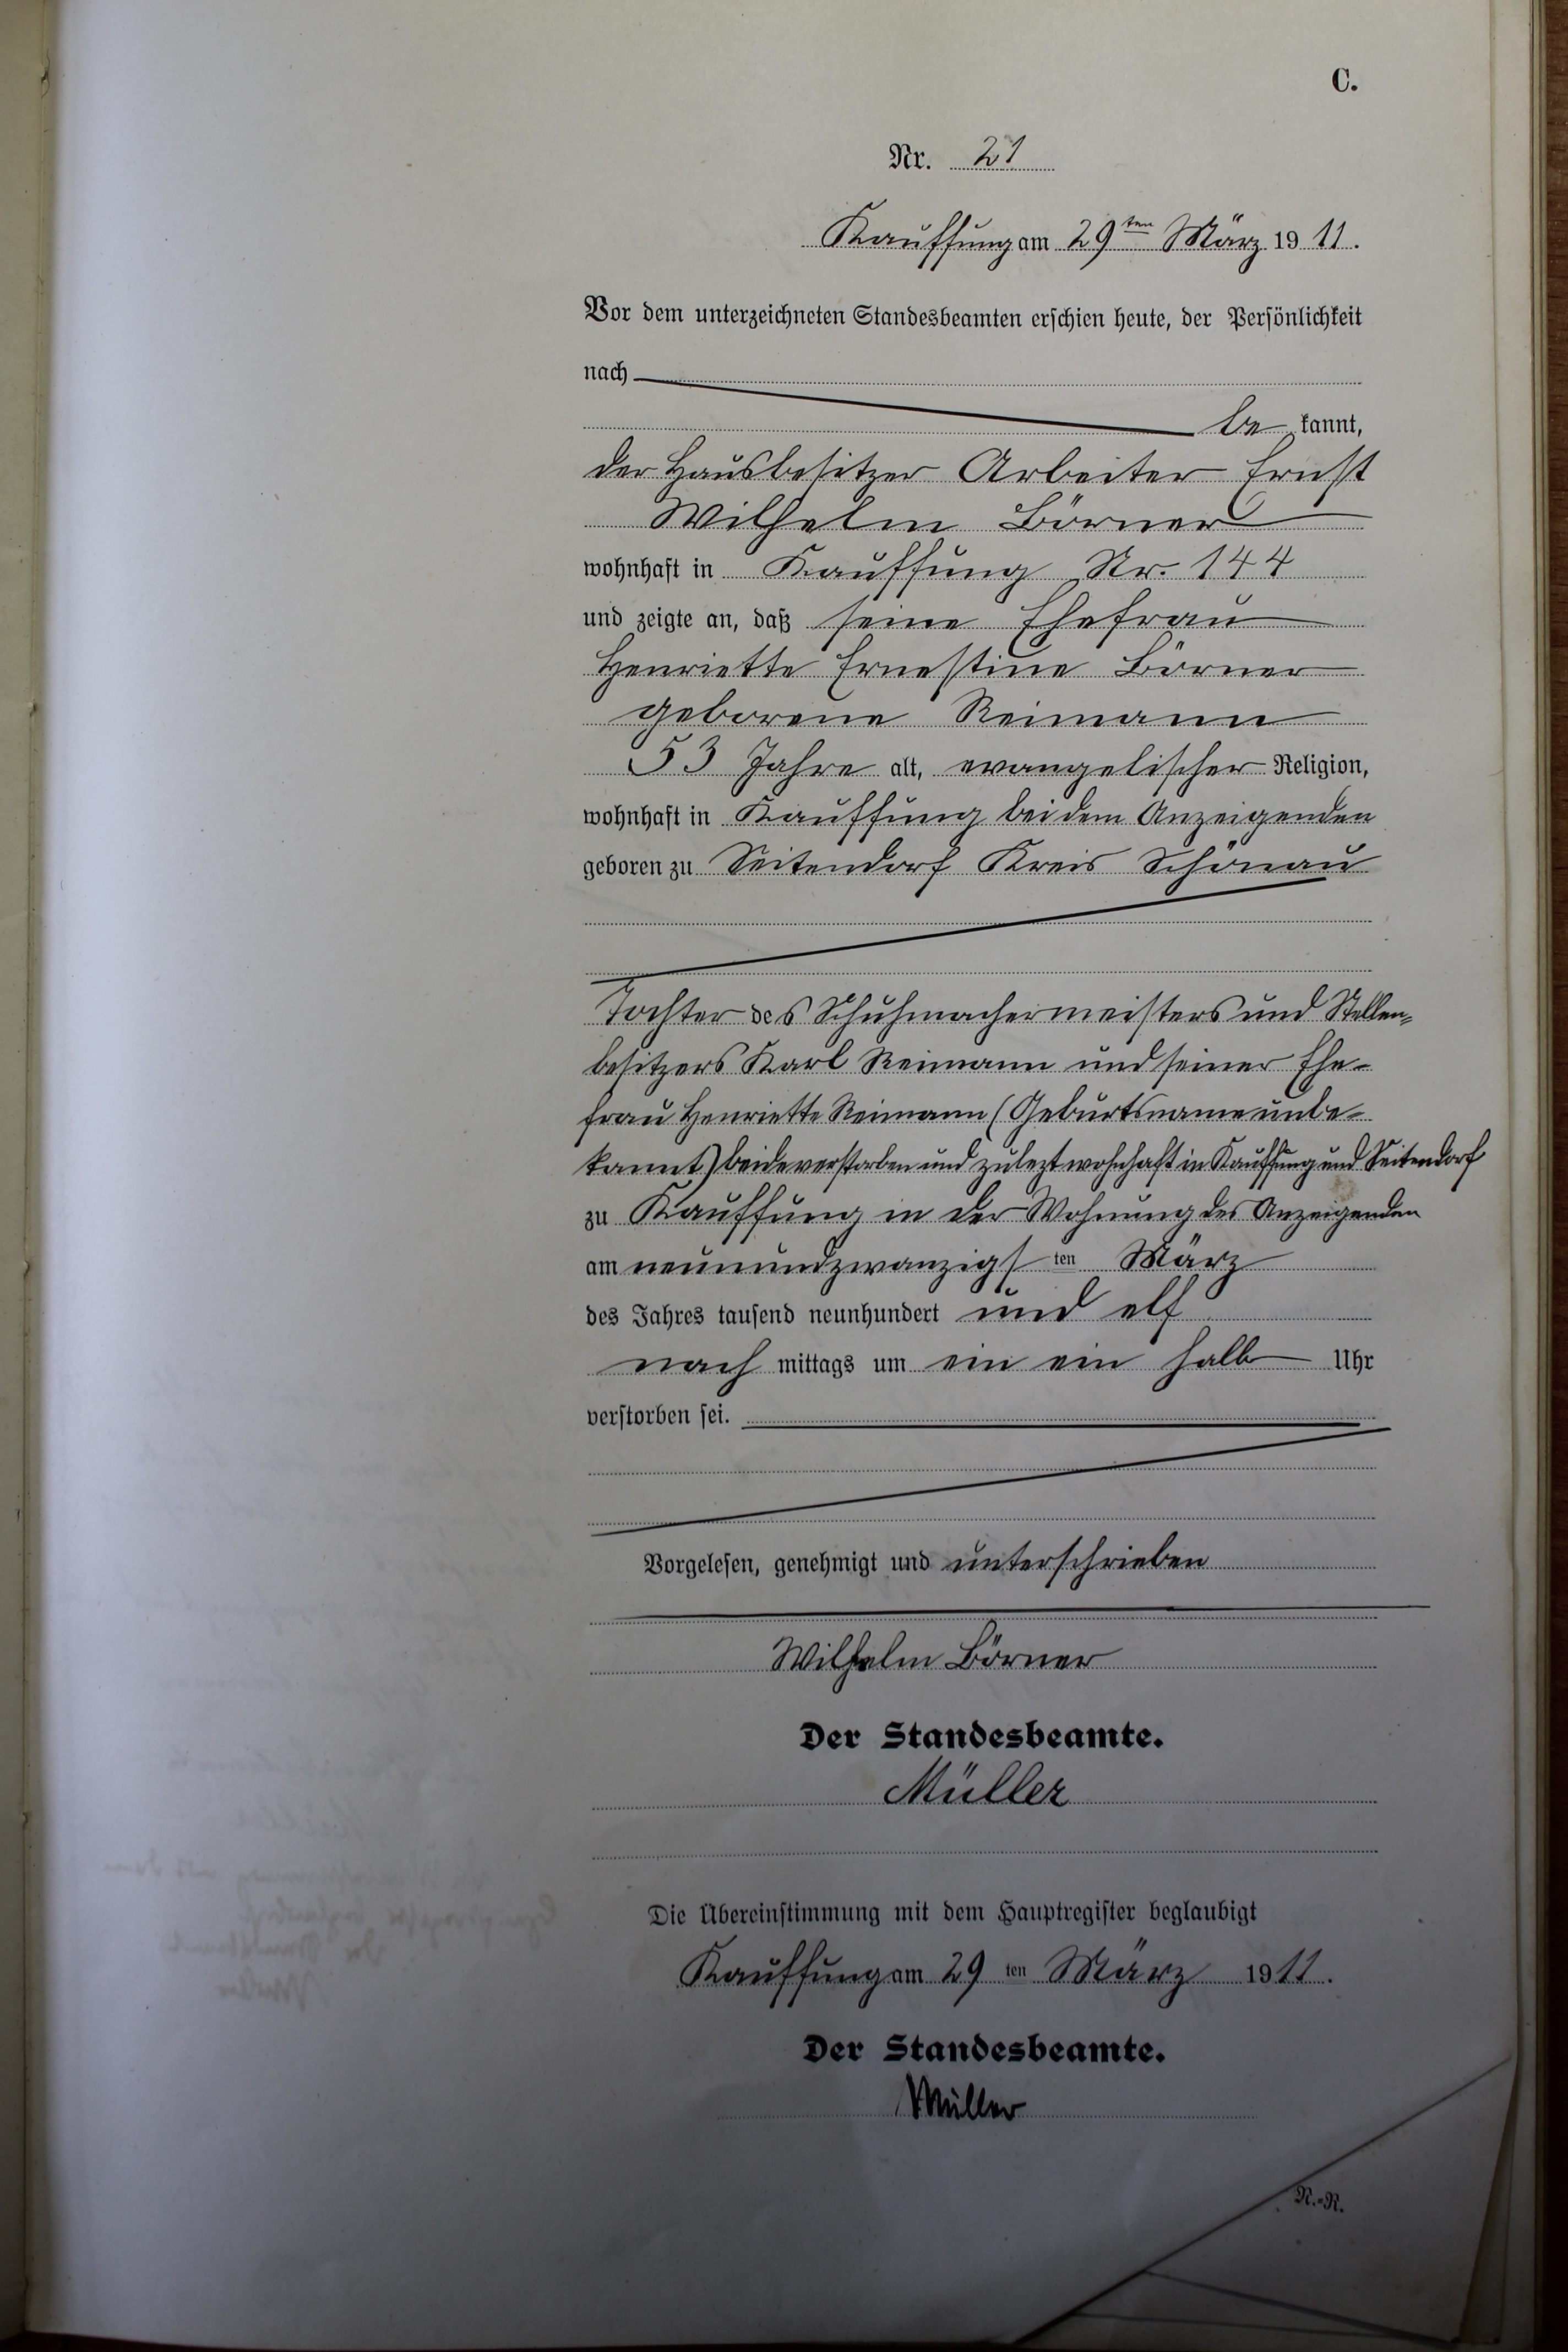 C.
Nr. 21
Kauffung am 29ten März 1911.
Vor dem unterzeichneten Standesbeamten erschien heute, der Persönlichkeit
nach
be kannt,
der Hausbesitzer Arbeiter Ernst
Wilhelm Börner
wohnhaft in Kauffung Nr. 144
und zeigte an, daß seine Ehefrau
Henriette Ernestine Börner
geborene Reimann
53 Jahre alt, evangelischer Religion,
wohnhaft in Kauffung bei dem Anzeigenden
geboren zu Seitendorf Kreis Schönau
Tochter des Schuhmachermeisters und Stellen-
besitzers Karl Reimann und seiner Ehe-
frau Henriette Reimann (Geburtsname unbe-
kannt) beide verstorben und zulezt wohnhaft in Kauffung und Seitendorf
zu Kauffung in der Wohnung des Anzeigenden
am neunundzwanzigsten März
des Jahres tausend neunhundert und elf
nach mittags um ein ein halb Uhr
verstorben sei.
Vorgelesen, genehmigt und unterschrieben
Wilhelm Börner
Der Standesbeamte.
Müller
Die Übereinstimmung mit dem Hauptregister beglaubigt
Kauffung am 29 ten März 1911.
Der Standesbeamte.
Müller
N.-R.